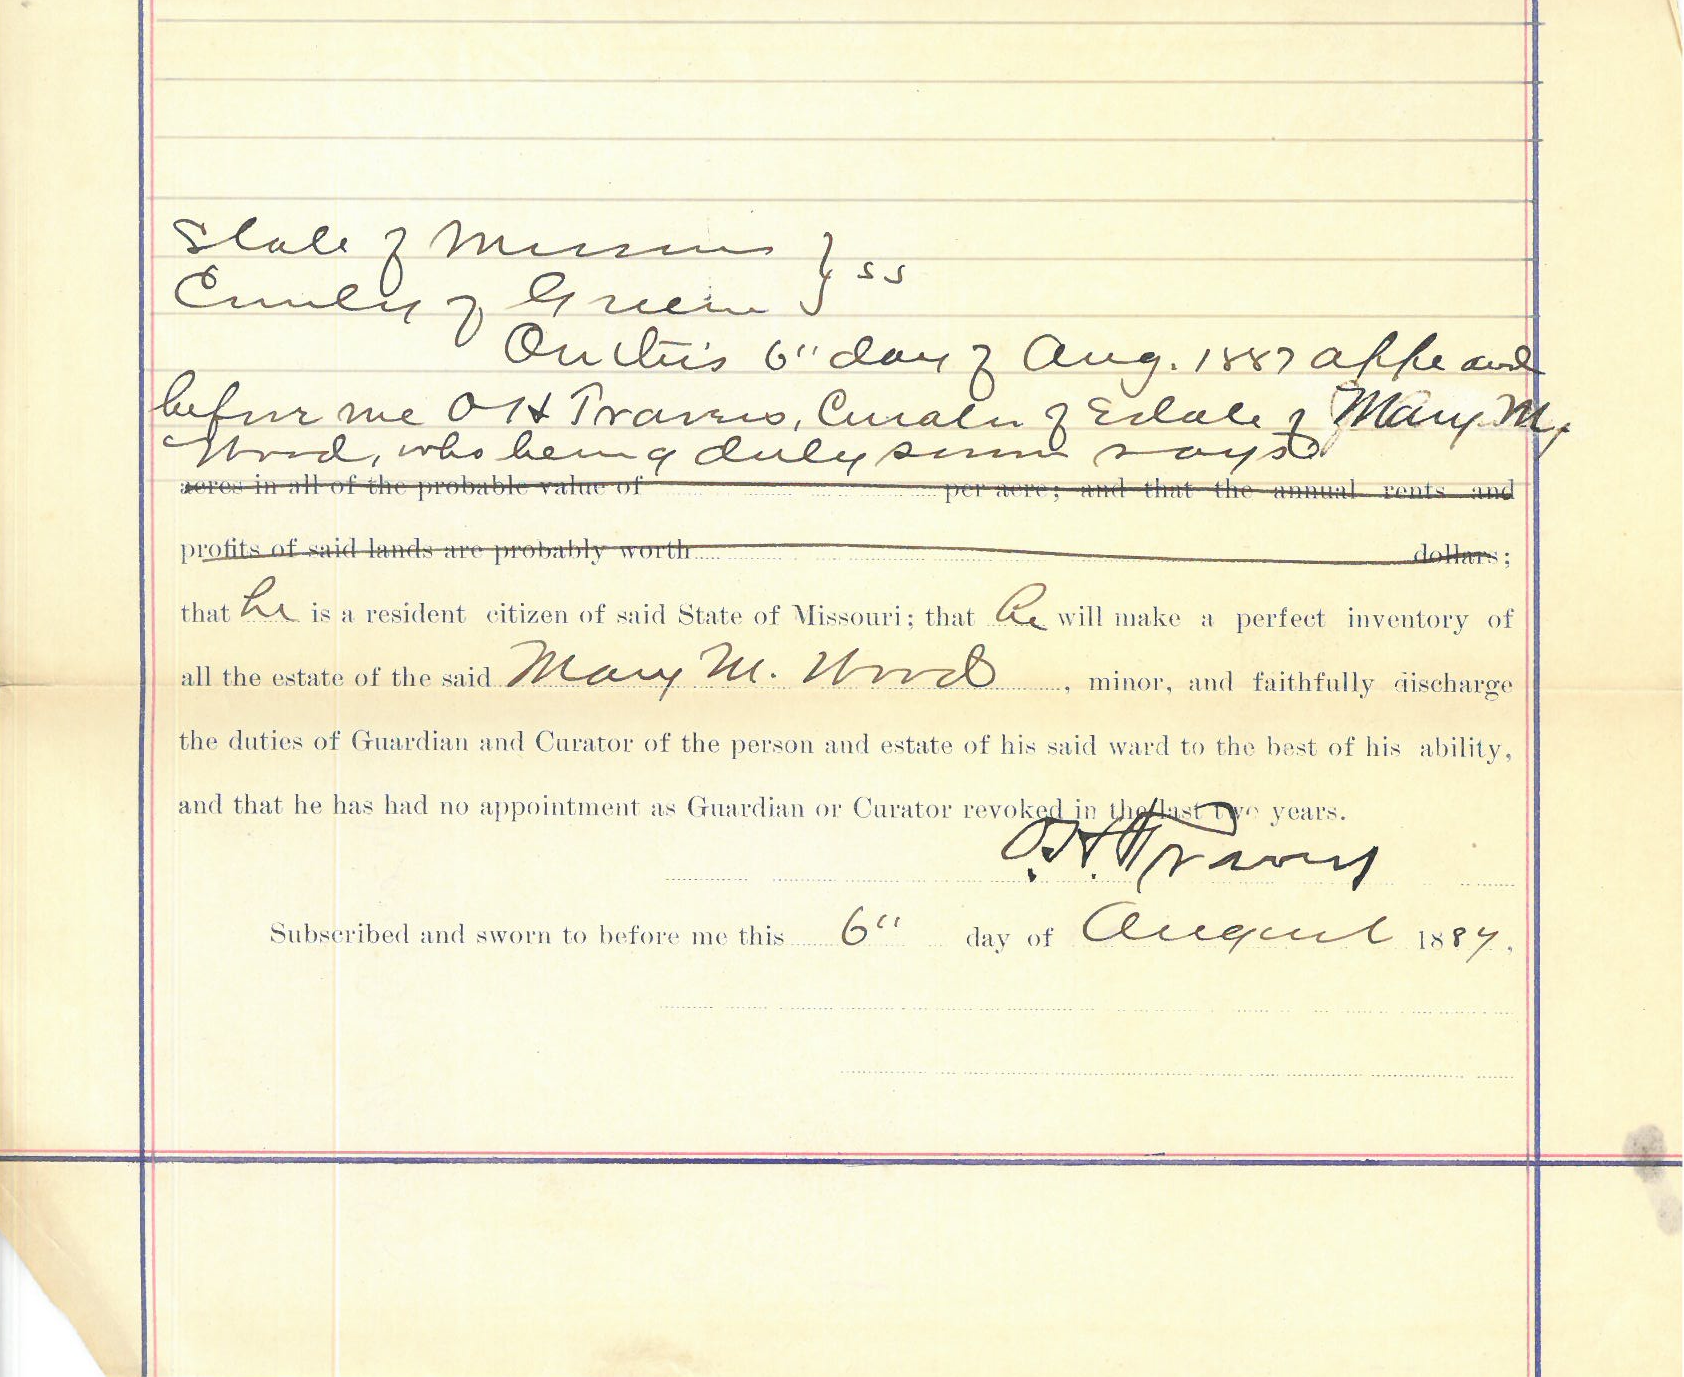 State of Missouri } ss
County of Greene
On this 6" day of Aug. 1887 appeared
before me O H Travers, Curator of Estate of Mary M.
Wood, who being duly sworn says
acres in all of the probable value of per acre; and that the annual rents and
profits of said lands are probably worth dollars;
that he is a resident citizen of said State of Missouri; that he will make a perfect inventory of
all the estate of the said Mary M. Wood, minor, and faithfully discharge
the duties of Guardian and Curator of the person and estate of his said ward to the best of his ability,
and that he has had no appointment as Guardian or Curator revoked in the last two years.
O. H. Travers
Subscribed and sworn to before me this 6" day of August 1887,